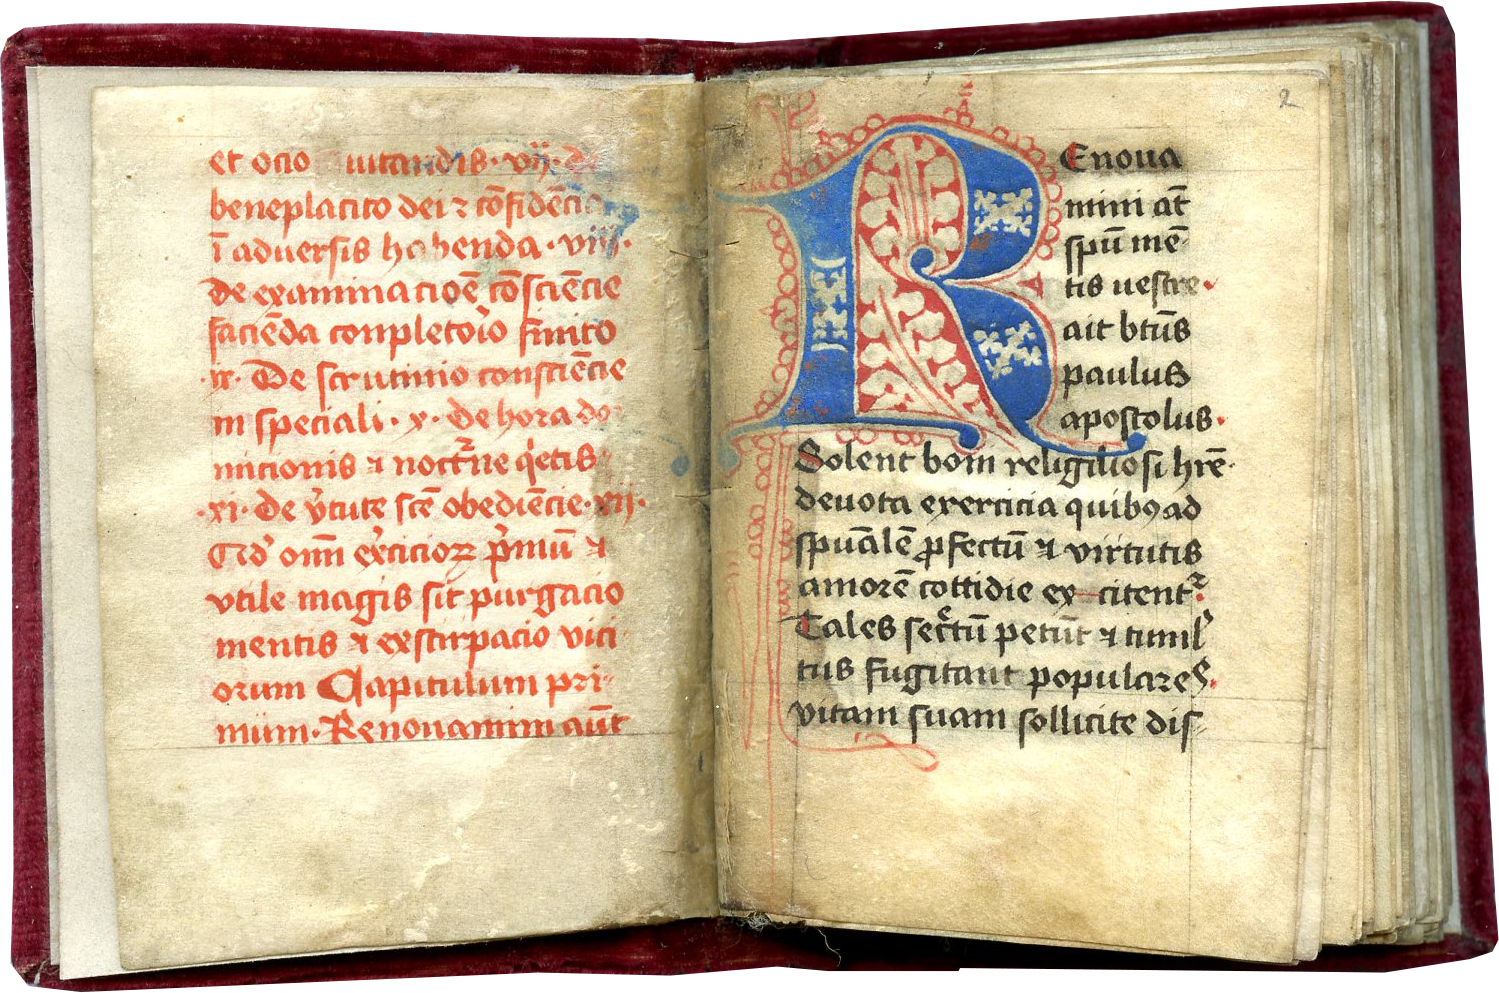 et ocio uitandis · vij · de
beneplacito dei ⁊ cōfidēcia
ī aduersis habenda · viij ·
de examinacioē cōsciēcie
faciēda conpletorio finito
· ix · De scrutinio consciēcie
in speciali · x · de hora do
micionis ⁊ noct̄ne q̇etis
· xi · De v̓tute scē obediēcie · xij ·
Qd̓ om̄ ex̓cicioꝝ p̄miū ⁊
vtile magis sit purgacio
mentis ⁊ exstirpacio vici
orum Capitulum pri-
mum · Renouamini aūt
2
R Enoua
mini aūt
spū mē
tis uestre ·
ait btūs
paulus
apostolus ·
Solent boni religiliosi hrē ·
deuota exercicia quibꝯ ad
spūalē ꝓfectū ⁊ virtutis
amorē cottidie ex-citent᷑
Tales sec̄tū petūt ⁊ tumlͥ
tus fugitant populares ·
vitam suam sollicite dis-